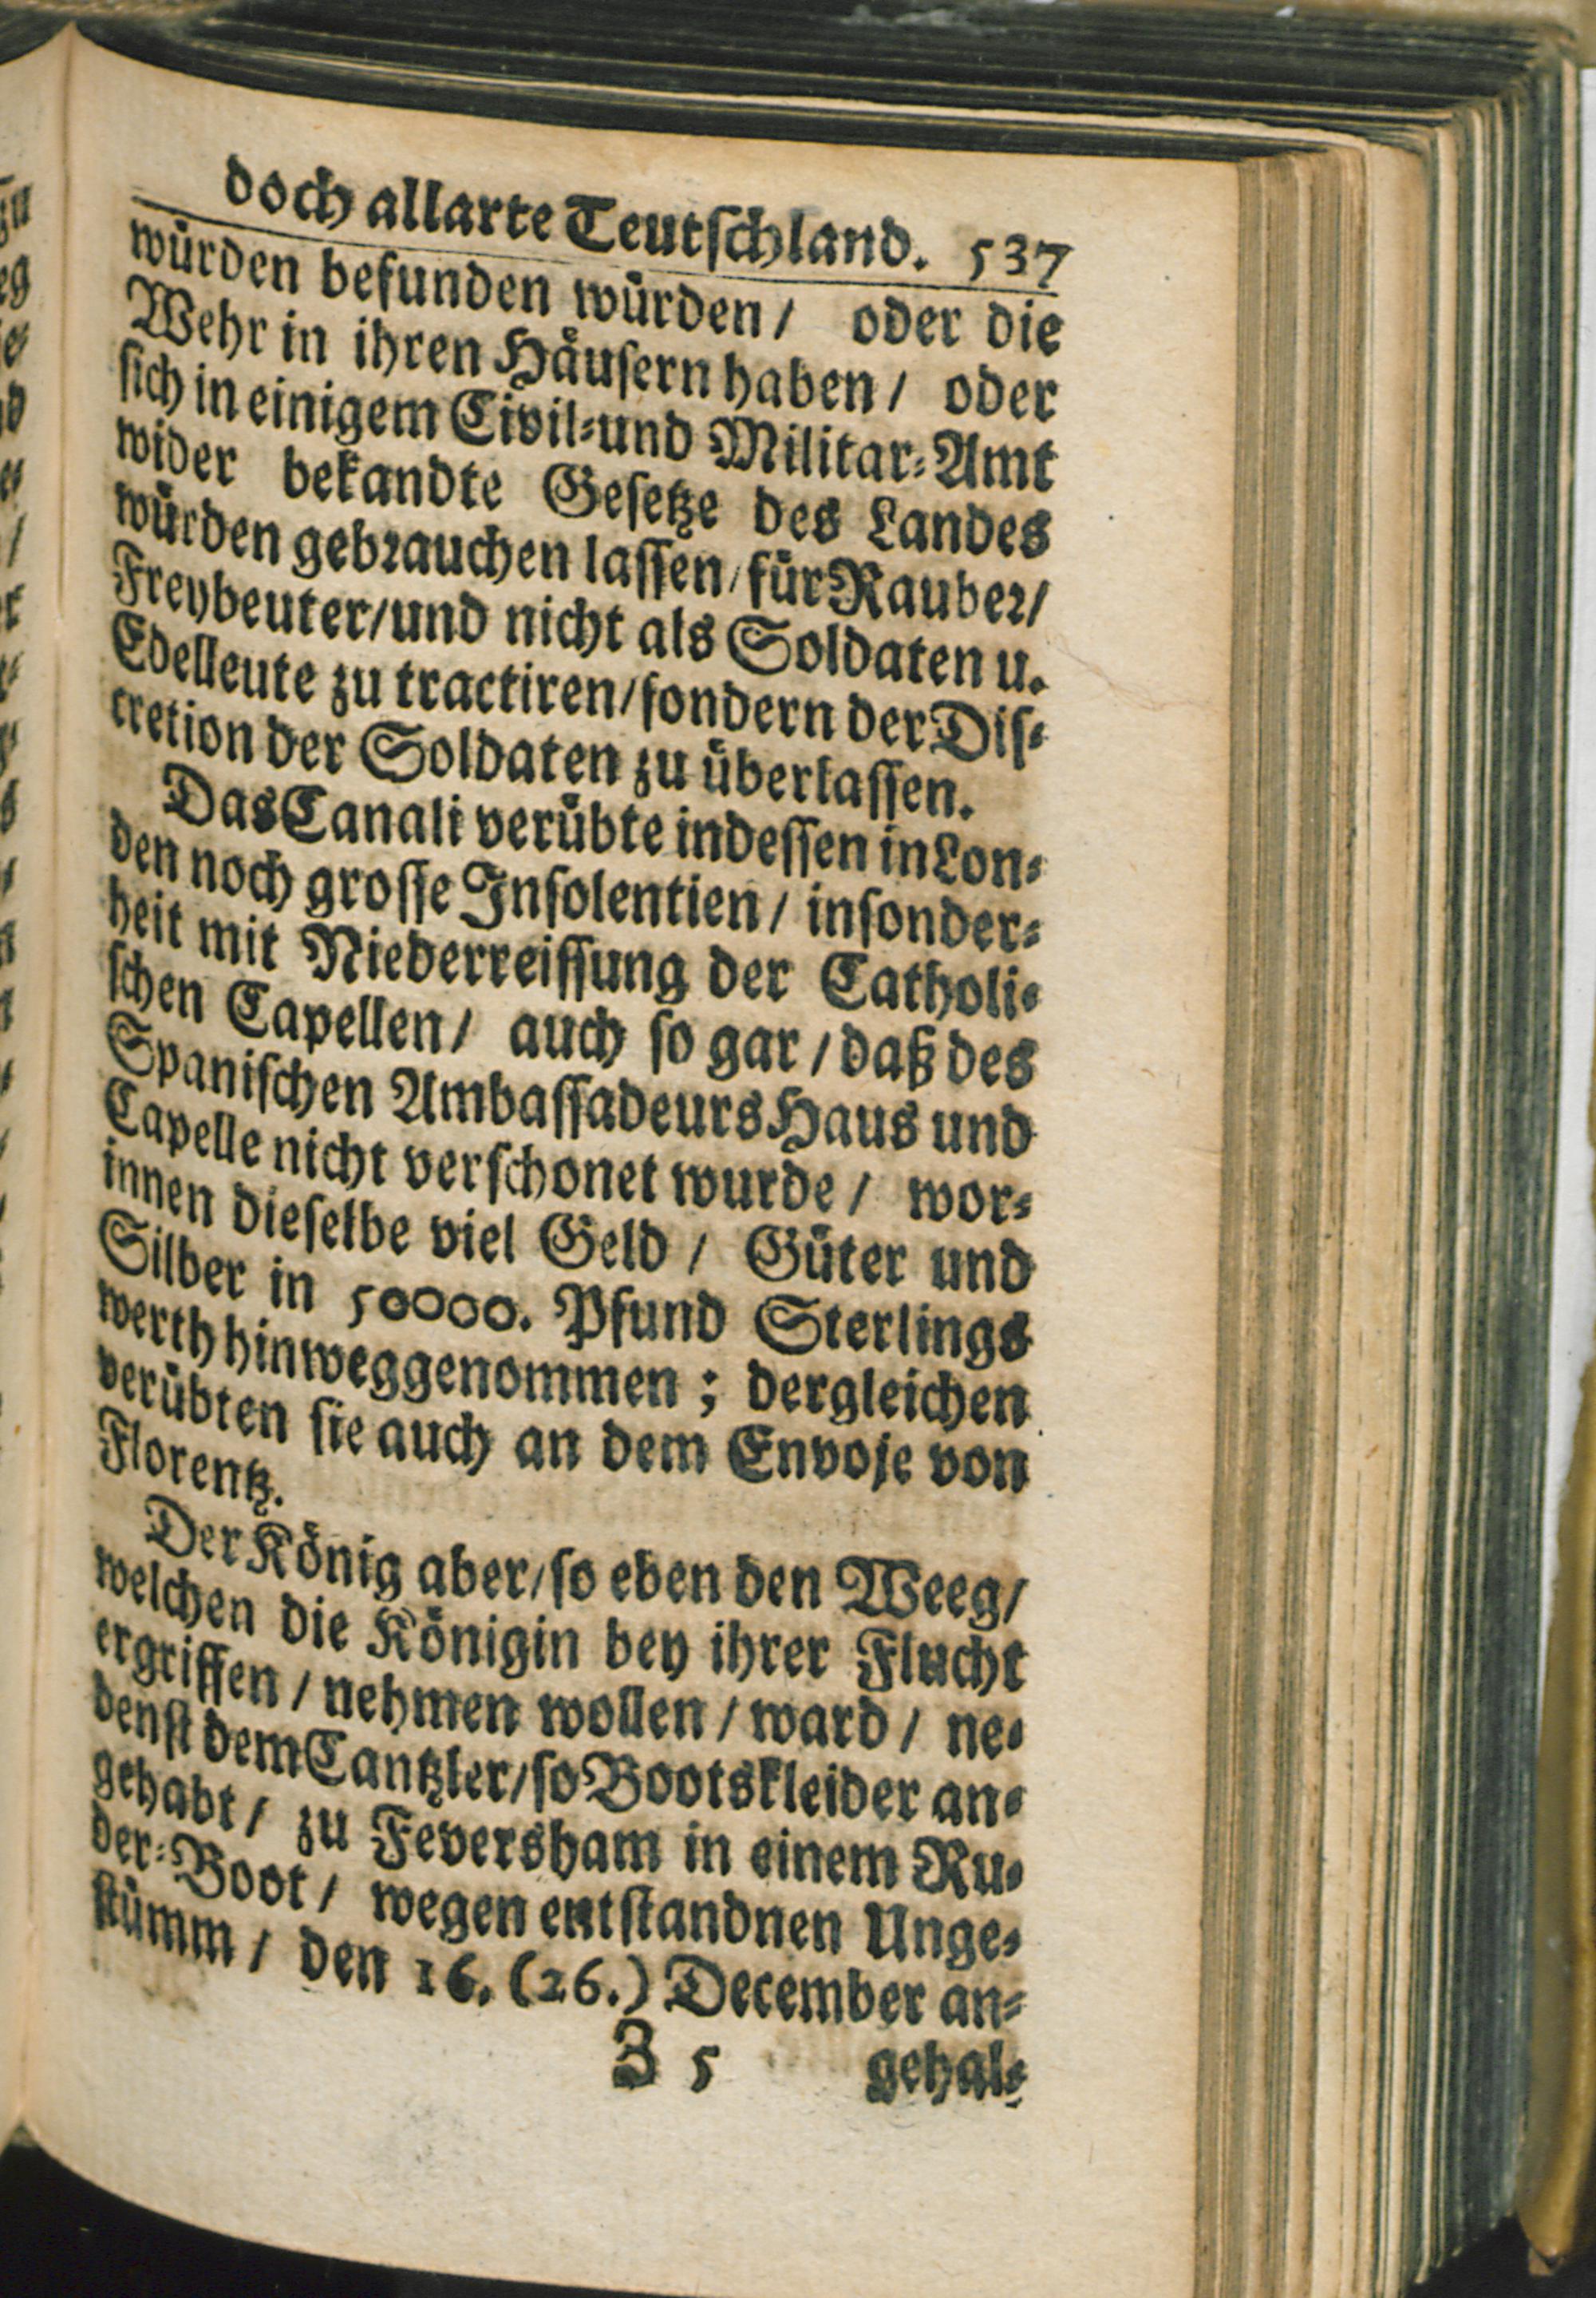 doch allarte Teutschland. 537
würden befunden würden / oder die
Wehr in ihren Häusern haben / oder
sich in einigem Civil-und Militar-Amt
wider bekandte Gesetze des Landes
würden gebrauchen lassen / für Rauber /
Freybeuter / und nicht als Soldaten u.
Edelleute zu tractiren / sondern der Dis-
cretion der Soldaten zu überlassen.
Das Canali verübte indessen in Lon-
den noch grosse Insolentien / insonder-
heit mit Niederreissung der Catholi-
schen Capellen / auch so gar / daß des
Spanischen Ambassadeurs Haus und
Capelle nicht verschonet wurde / wor-
innen dieselbe viel Geld / Güter und
Silber in 50000. Pfund Sterlings
werth hinweggenommen ; dergleichen
verübten sie auch an dem Envoje von
Florentz.
Der König aber / so eben den Weeg /
welchen die Königin bey ihrer Flucht
ergriffen / nehmen wollen / ward / ne-
benst dem Cantzler / so Bootskleider an-
gehabt / zu Feversham in einem Ru-
der-Boot / wegen entstandnen Unge-
stümm / den 16. (26.) December an-
Z 5 gehal-